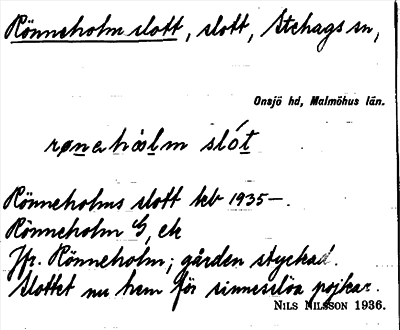 Rönneholm slott, slott, Stehags sn,
Onsjö hd, Malmöhus län.
rønəhålm slót
Rönneholms slott teb 1935–.
Rönneholm G, ek
Jfr. Rönneholm; gården styckad.
Slottet nu hem för sinnesslöa pojkar.
NILS NILSSON 1936.